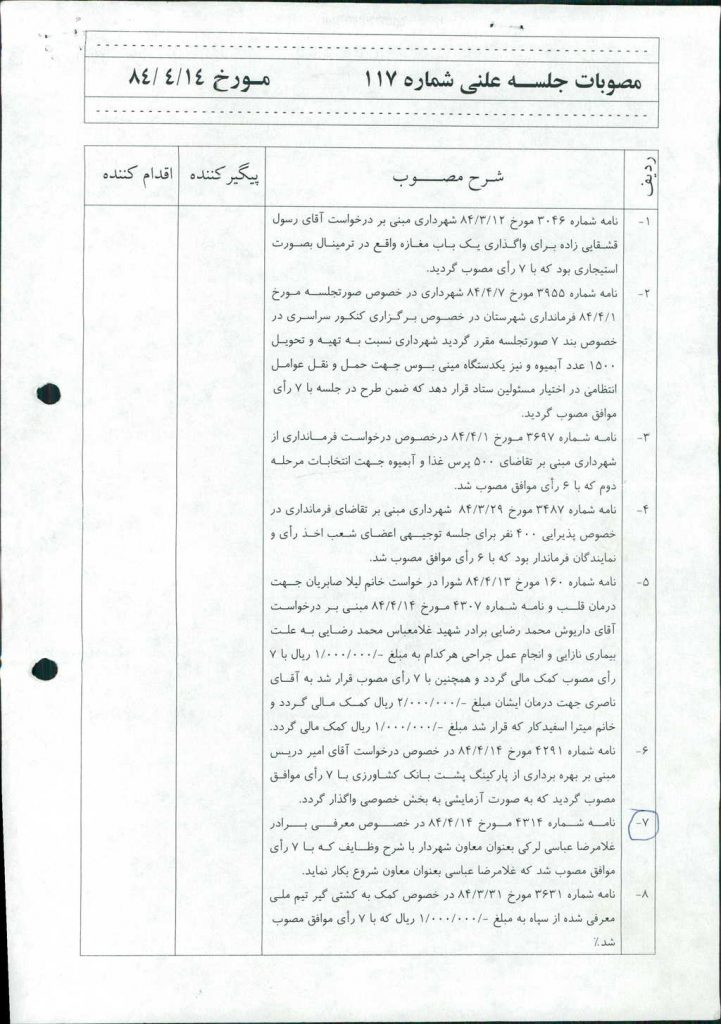 مصوبات جلسـه علنی شماره ۱۱۷ مـورخ ۸۴/۴/۱۴
ردیف شرح مصـــوب پیگیرکننده اقدام کننده
۱- نامه شماره ۳۰۴۶ مورخ ۸۴/۳/۱۲ شهرداری مبنی بر درخواست آقای رسول
قشقایی زاده برای واگذاری یک باب مغازه واقع در ترمینال بصورت
استیجاری بود که با ۷ رأی مصوب گردید.
۲- نامه شماره ۳۹۵۵ مورخ ۸۴/۴/۷ شهرداری در خصوص صورتجلسه مورخ
۸۴/۴/۱ فرمانداری شهرستان در خصوص برگزاری کنکور سراسری در
خصوص بند ۷ صورتجلسه مقرر گردید شهرداری نسبت به تهیه و تحویل
۱۵۰۰ عدد آبمیوه و نیز یکدستگاه مینی بوس جهت حمل و نقل عوامل
انتظامی در اختیار مسئولین ستاد قرار دهد که ضمن طرح در جلسه با ۷ رأی
موافق مصوب گردید.
۳- نامه شماره ۳۶۹۷ مورخ ۸۴/۴/۱ درخصوص درخواست فرمانداری از
شهرداری مبنی بر تقاضای ۵۰۰ پرس غذا و آبمیوه جهت انتخابات مرحله
دوم که با ۶ رأی موافق مصوب شد.
۴- نامه شماره ۳۴۸۷ مورخ ۸۴/۳/۲۹ شهرداری مبنی بر تقاضای فرمانداری در
خصوص پذیرایی ۴۰۰ نفر برای جلسه توجیهی اعضای شعب اخذ رأی و
نمایندگان فرماندار بود که با ۶ رأی موافق مصوب شد.
۵- نامه شماره ۱۶۰ مورخ ۸۴/۴/۱۳ شورا در خواست خانم لیلا صابریان جهت
درمان قلب و نامه شماره ۴۳۰۷ مورخ ۸۴/۴/۱۴ مبنی بر درخواست
آقای داریوش محمد رضایی برادر شهید غلامعباس محمد رضایی به علت
بیماری نازایی و انجام عمل جراحی هرکدام به مبلغ -/۱/۰۰۰/۰۰۰ ریال با ۷
رأی مصوب کمک مالی گردد و همچنین با ۷ رأی مصوب قرار شد به آقای
ناصری جهت درمان ایشان مبلغ -/۲/۰۰۰/۰۰۰ ریال کمک مالی گردد و
خانم میترا اسفیدکار که قرار شد مبلغ -/۱/۰۰۰/۰۰۰ ریال کمک مالی گردد.
۶- نامه شماره ۴۲۹۱ مورخ ۸۴/۴/۱۴ در خصوص درخواست آقای امیر دریس
مبنی بر بهره برداری از پارکینگ پشت بانک کشاورزی با ۷ رأی موافق
مصوب گردید که به صورت آزمایشی به بخش خصوصی واگذار گردد.
۷- نامه شماره ۴۳۱۴ مورخ ۸۴/۴/۱۴ در خصوص معرفی برادر
غلامرضا عباسی لرکی بعنوان معاون شهردار با شرح وظایف که با ۷ رأی
موافق مصوب شد که غلامرضا عباسی بعنوان معاون شروع بکار نماید.
۸- نامه شماره ۳۶۳۱ مورخ ۸۴/۳/۳۱ در خصوص کمک به کشتی گیر تیم ملی
معرفی شده از سپاه به مبلغ -/۱/۰۰۰/۰۰۰ ریال که با ۷ رأی موافق مصوب
شد٪